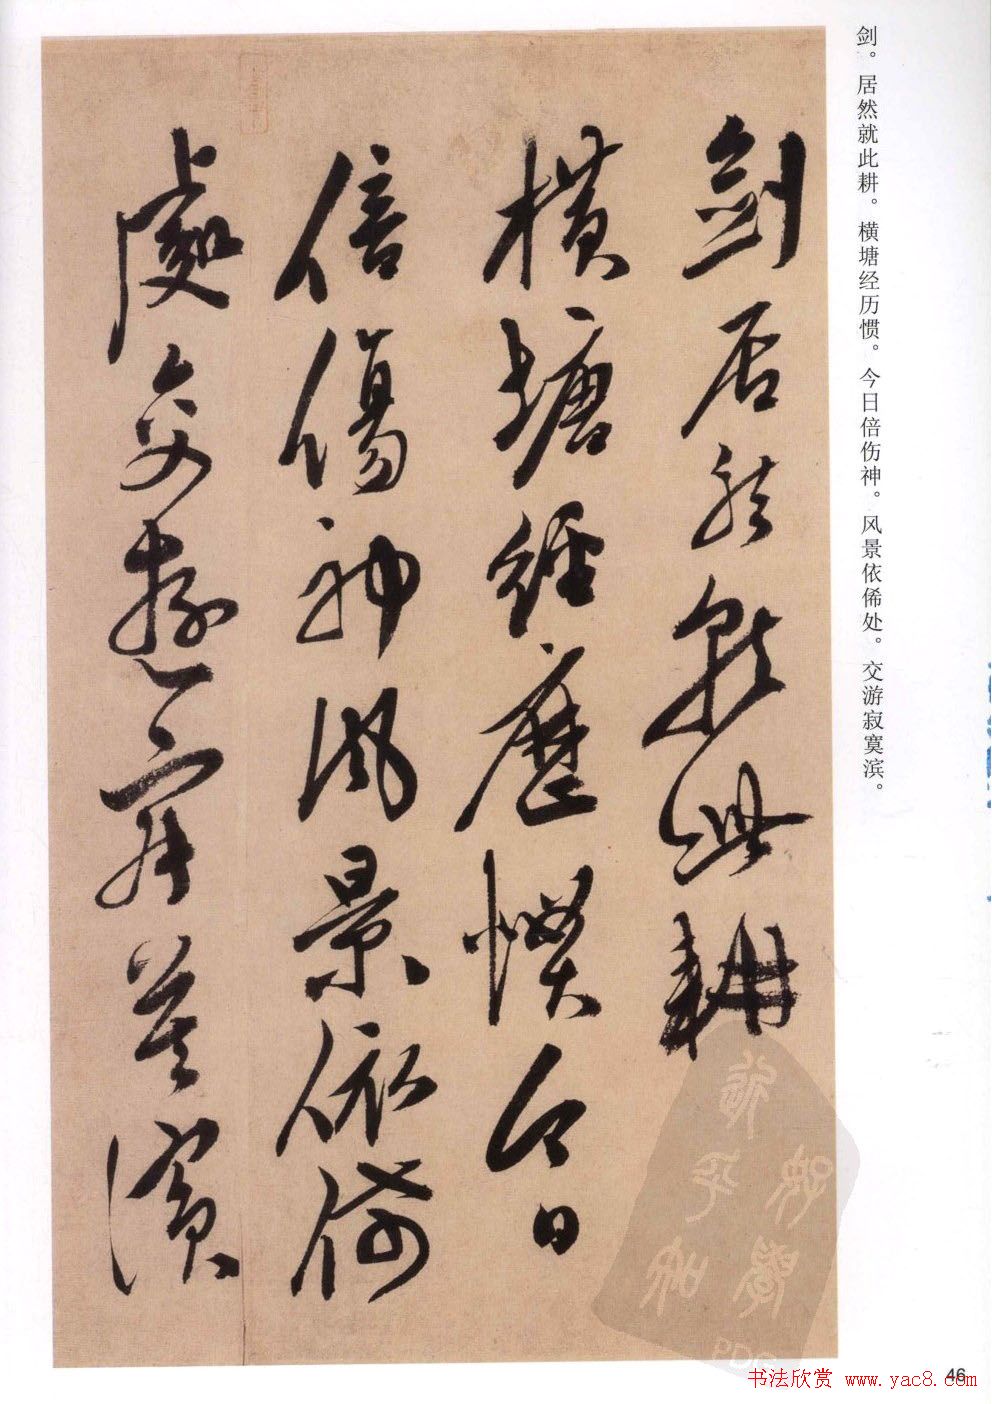 剑。居然就此耕。横塘经历惯。今日倍伤神。风景依俙处。交游寂寞滨。
劍居然就此耕
橫塘經歷慣今日
倍傷神風景依俙
處交遊寂寞濱
46
书法欣赏 www.yac8.com